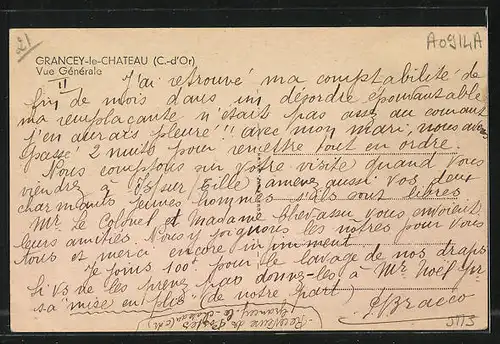 21
A0914A
GRANCEY-le-CHATEAU (C.-d'Or)
Vue Générale
II
J'ai retrouvé ma comptabilité de
fin de mois dans un désordre épouvantable
ma remplaçante n'était pas assez au courant
j'en aurais pleuré!! avec mon mari, nous avons
passé 2 nuits pour remettre tout en ordre.
Nous comptons sur votre visite quand vous
viendrez à Is/sur (Tille) amenez aussi vos deux
charmants jeunes hommes s'ils sont libres
Mr le Colonel et Madame Chevassu vous envoient
leurs amitiés. Nous y joignons les nôtres pour vous
tous et merci encore infiniment
Je joins 100f pour le lavage de nos draps
Si vs ne les prenez pas donnez-les à Mr Noël pr
sa "mise en plis" (de notre part)
GBracco
Receveuse des Postes
Grancey le château (C d'Or)
5113